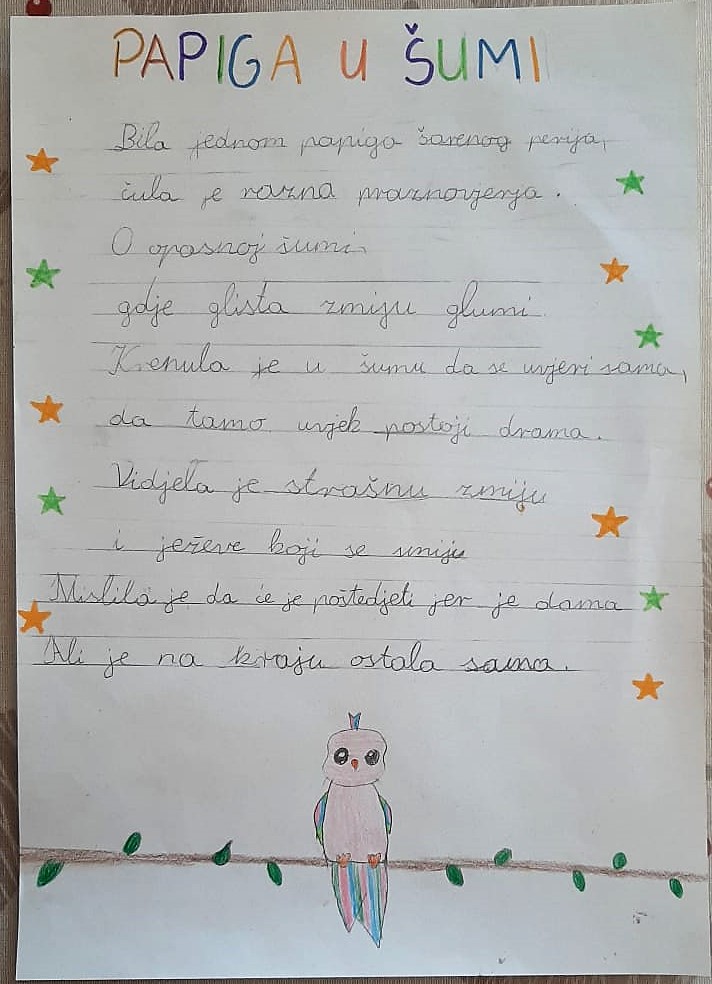 PAPIGA U ŠUMI
Bila jednom papiga šarenog perija,
čula je razna praznovjerja.
O opasnoj šumi
gdje glista zmiju glumi.
Krenula je u šumu da se uvjeri sama,
da tamo uvjek postoji drama.
Vidjela je strašnu zmiju
i ježeve koji se umiju
Mislila je da će je poštedjeti jer je dama
Ali je na kraju ostala sama.